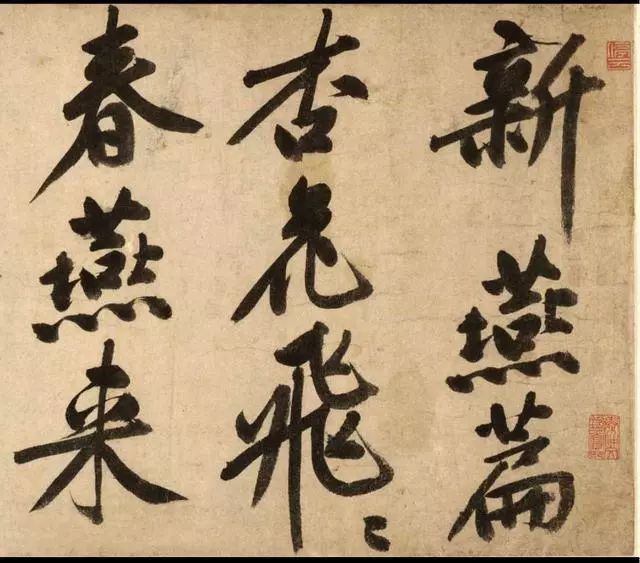 新燕篇
杏花飛〻
春燕来